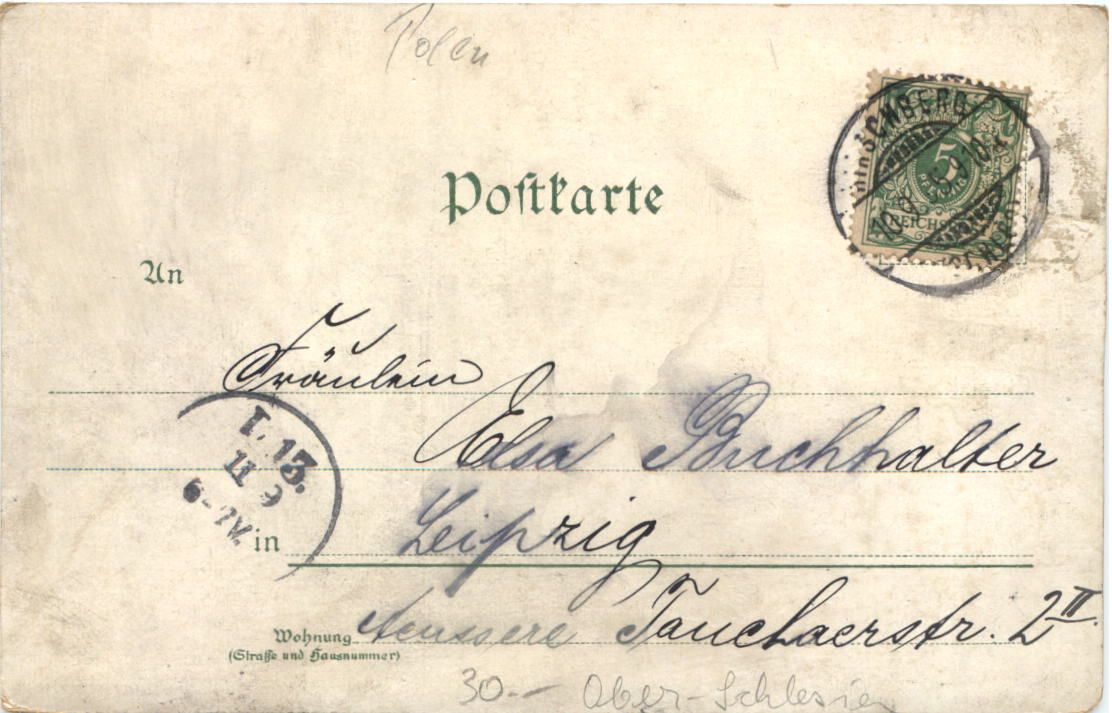 Polen
Postkarte
HIRSCHBERG
5
PFENNIG
REICHSPOST
An
Fräulein
Elsa Buchhalter
I. 13.
11 9
6-7V.
in
Leipzig
Wohnung
(Straße und Hausnummer)
Aeussere Tauchaerstr. 2 II.
30.-- Ober-Schlesien